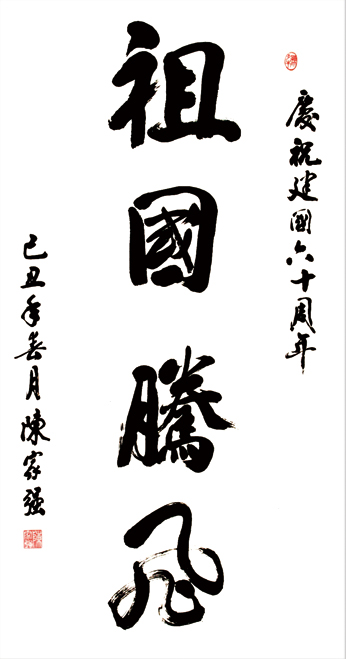 慶祝建國六十周年
祖國騰飛
己丑年春月陳家强